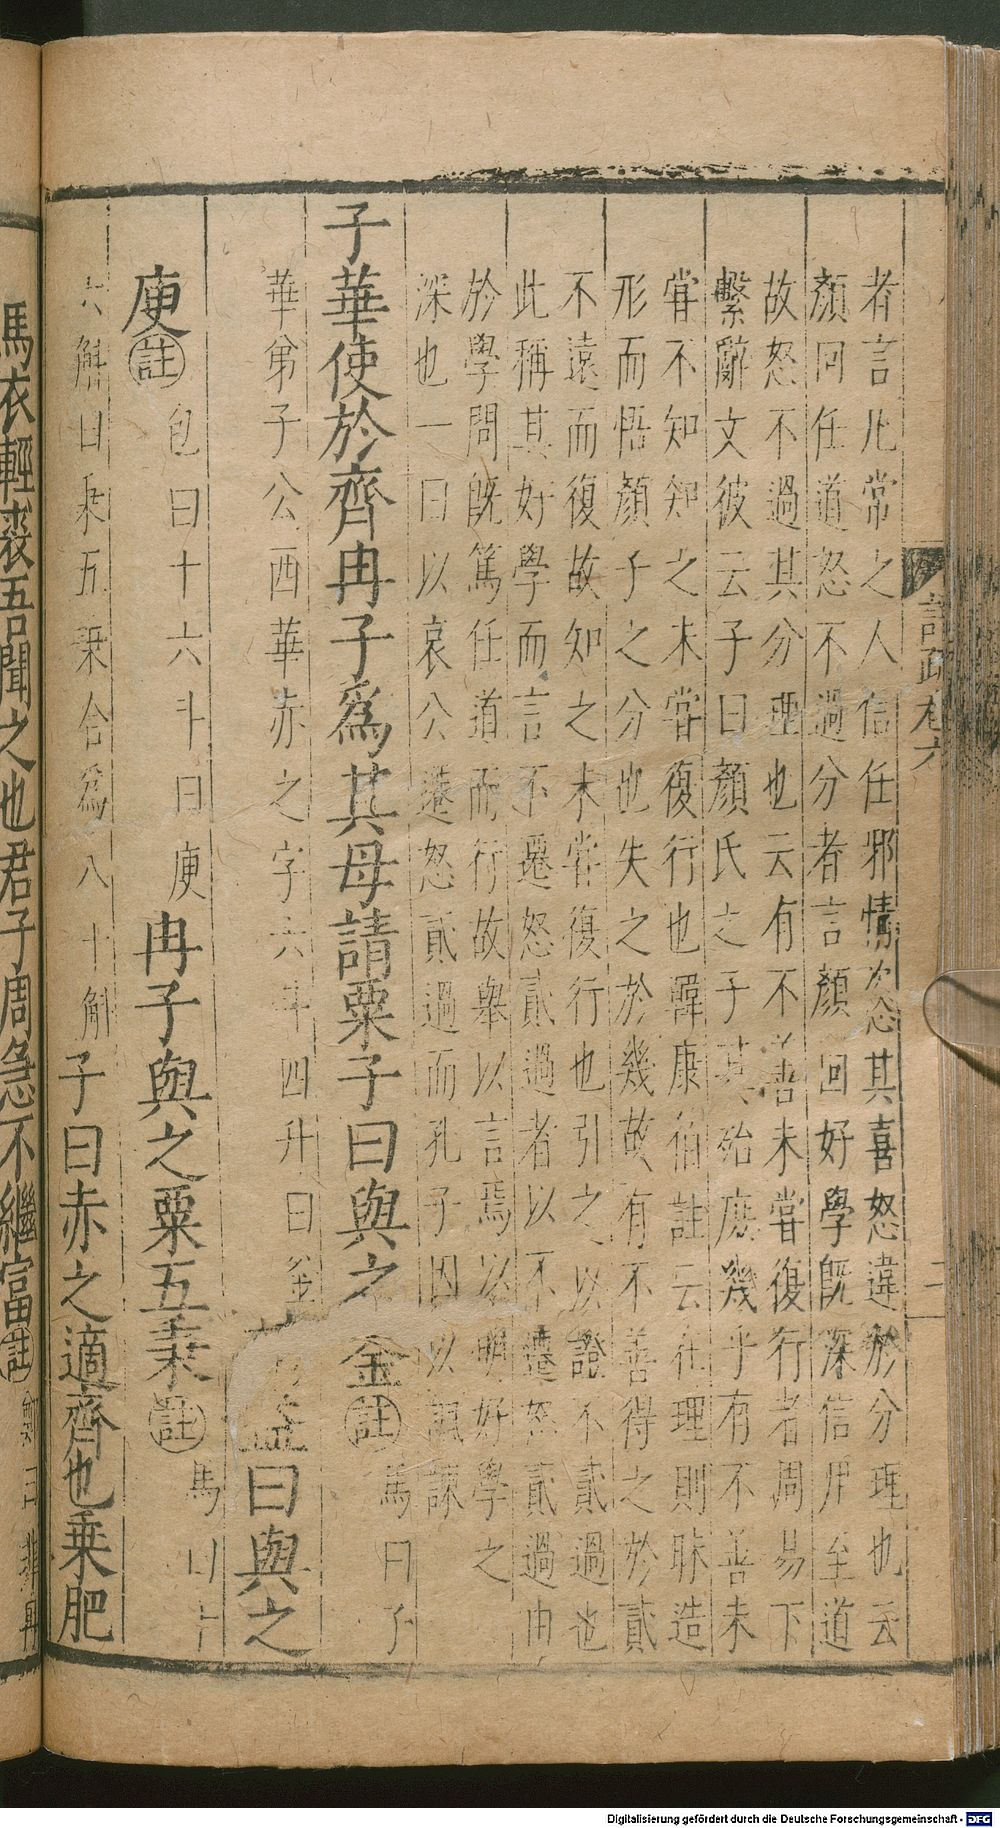 語疏卷六
二
者言凡常之人信任邪情恣其喜怒違於分理也云
顏回任道怒不過分者言顏回好學既深信用至道
故怒不過其分理也云有不善未嘗復行者周易下
繫辭文彼云子曰顏氏之子其殆庶幾乎有不善未
嘗不知知之未嘗復行也韓康伯註云在理則昧造
形而悟顏子之分也失之於幾故有不善得之於貳
不遠而復故知之未嘗復行也引之以證不貳過也
此稱其好學而言不遷怒貳過者以不遷怒貳過由
於學問既篤任道而行故舉以言焉以明好學之
深也一曰以哀公遷怒貳過而孔子因以諷諫
子華使於齊冉子為其母請粟子曰與之釜註馬曰子
華弟子公西華赤之字六斗四升曰釜益曰與之
庾註包曰十六斗曰庾冉子與之粟五秉註馬曰十
六斛曰秉五秉合為八十斛子曰赤之適齊也乘肥
馬衣輕裘吾聞之也君子周急不繼富註鄭曰非冉
Digitalisierung gefördert durch die Deutsche Forschungsgemeinschaft - DFG